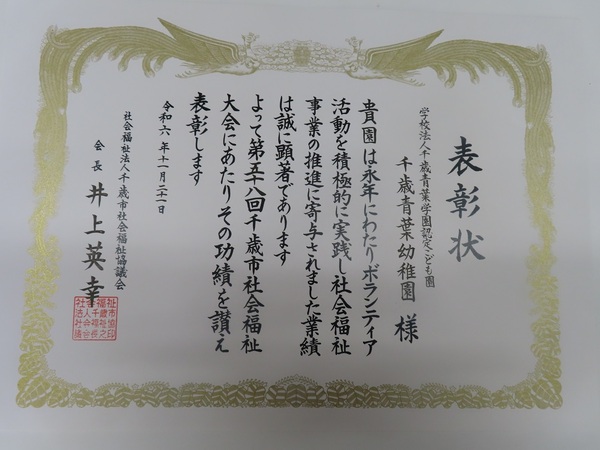 表彰状
学校法人千歳青葉学園認定こども園
千歳青葉幼稚園 様
貴園は永年にわたりボランティア
活動を積極的に実践し社会福祉
事業の推進に寄与されました業績
は誠に顕著であります
よって第五十八回千歳市社会福祉
大会にあたりその功績を讃え
表彰します
令和六年十一月二十一日
社会福祉法人千歳市社会福祉協議会
会長 井上英幸